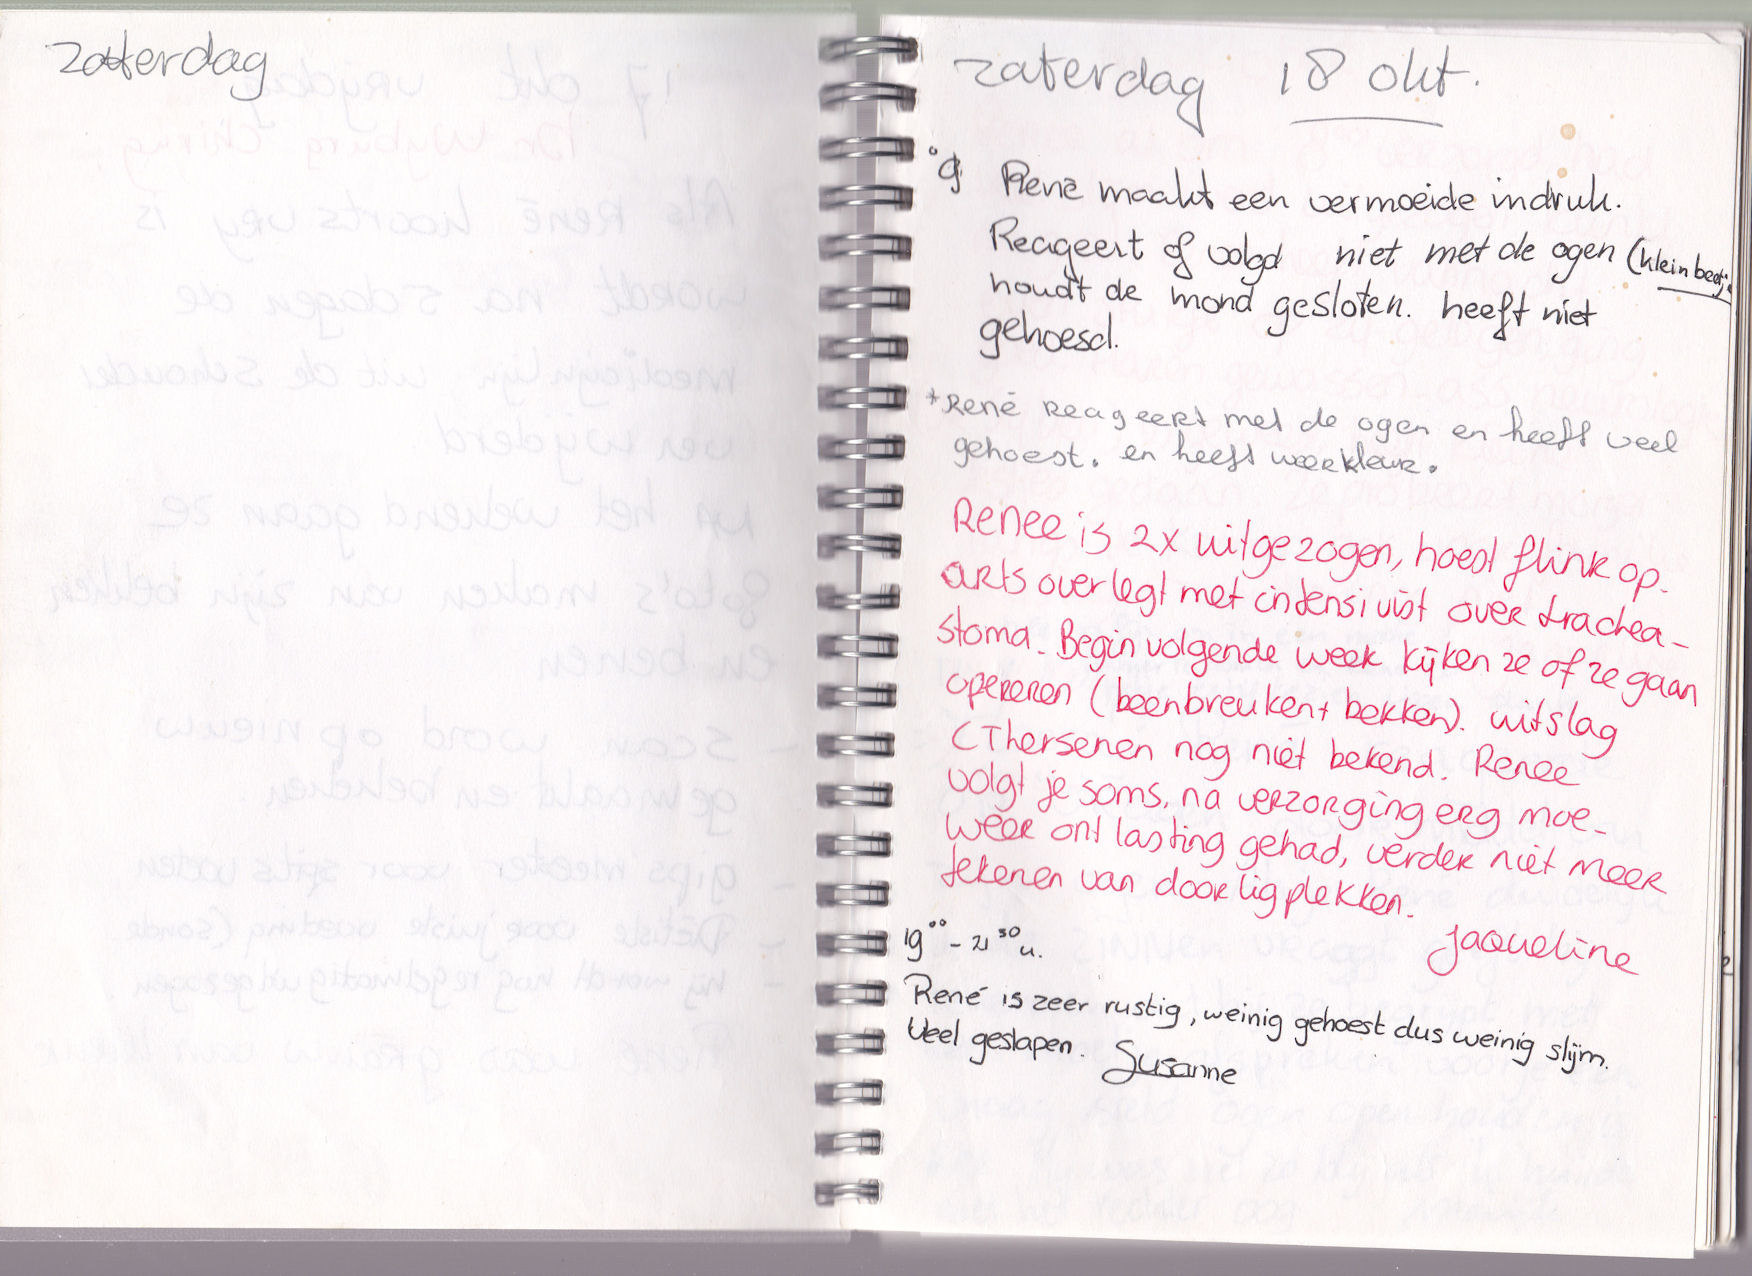 zaterdag
zaterdag 18 okt.
René maakt een vermoeide indruk.
Reageert of volgd niet met de ogen (klein beetje
houdt de mond gesloten. heeft niet
gehoesd.
*René Reageert met de ogen en heeft veel
gehoest. en heeft weer kleur.
Renee is 2x uitgezogen, hoest flink op.
arts overlegt met intensivist over trachea-
stoma. Begin volgende week kijken ze of ze gaan
opereren (beenbreuken + bekken). uitslag
CT hersenen nog niet bekend. Renee
volgt je soms, na verzorging erg moe-
weer ontlasting gehad, verder niet meer
tekenen van doorligplekken.
Jaqueline
19⁰⁰ - 21³⁰ u.
René is zeer rustig, weinig gehoest dus weinig slijm.
Veel geslapen. Susanne